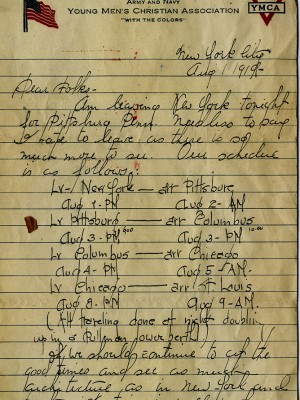 ARMY AND NAVY
YOUNG MEN'S CHRISTIAN ASSOCIATION
"WITH THE COLORS"
YMCA
New York City
Aug 1 1919-
Dear Folks-
Am leaving New York tonight
for Pittsburg Penn. Needless to say
I hate to leave, as there is so
much more to see. Our schedule
is as follows:
Lv - New York — arr Pittsburg
Aug 1 - PM Aug 2 - AM.
Lv Pittsburg — arr Columbus
Aug 3 - PM Aug 3 - PM
Lv Columbus — arr Chicago
Aug 4 - PM Aug 5 - AM.
Lv Chicago — arr St Louis
Aug 8 - PM Aug 9 - AM.
(All traveling done at night doubling
up in a Pullman lower berth)
If we should continue to
good times and see as much
architecture as in New York